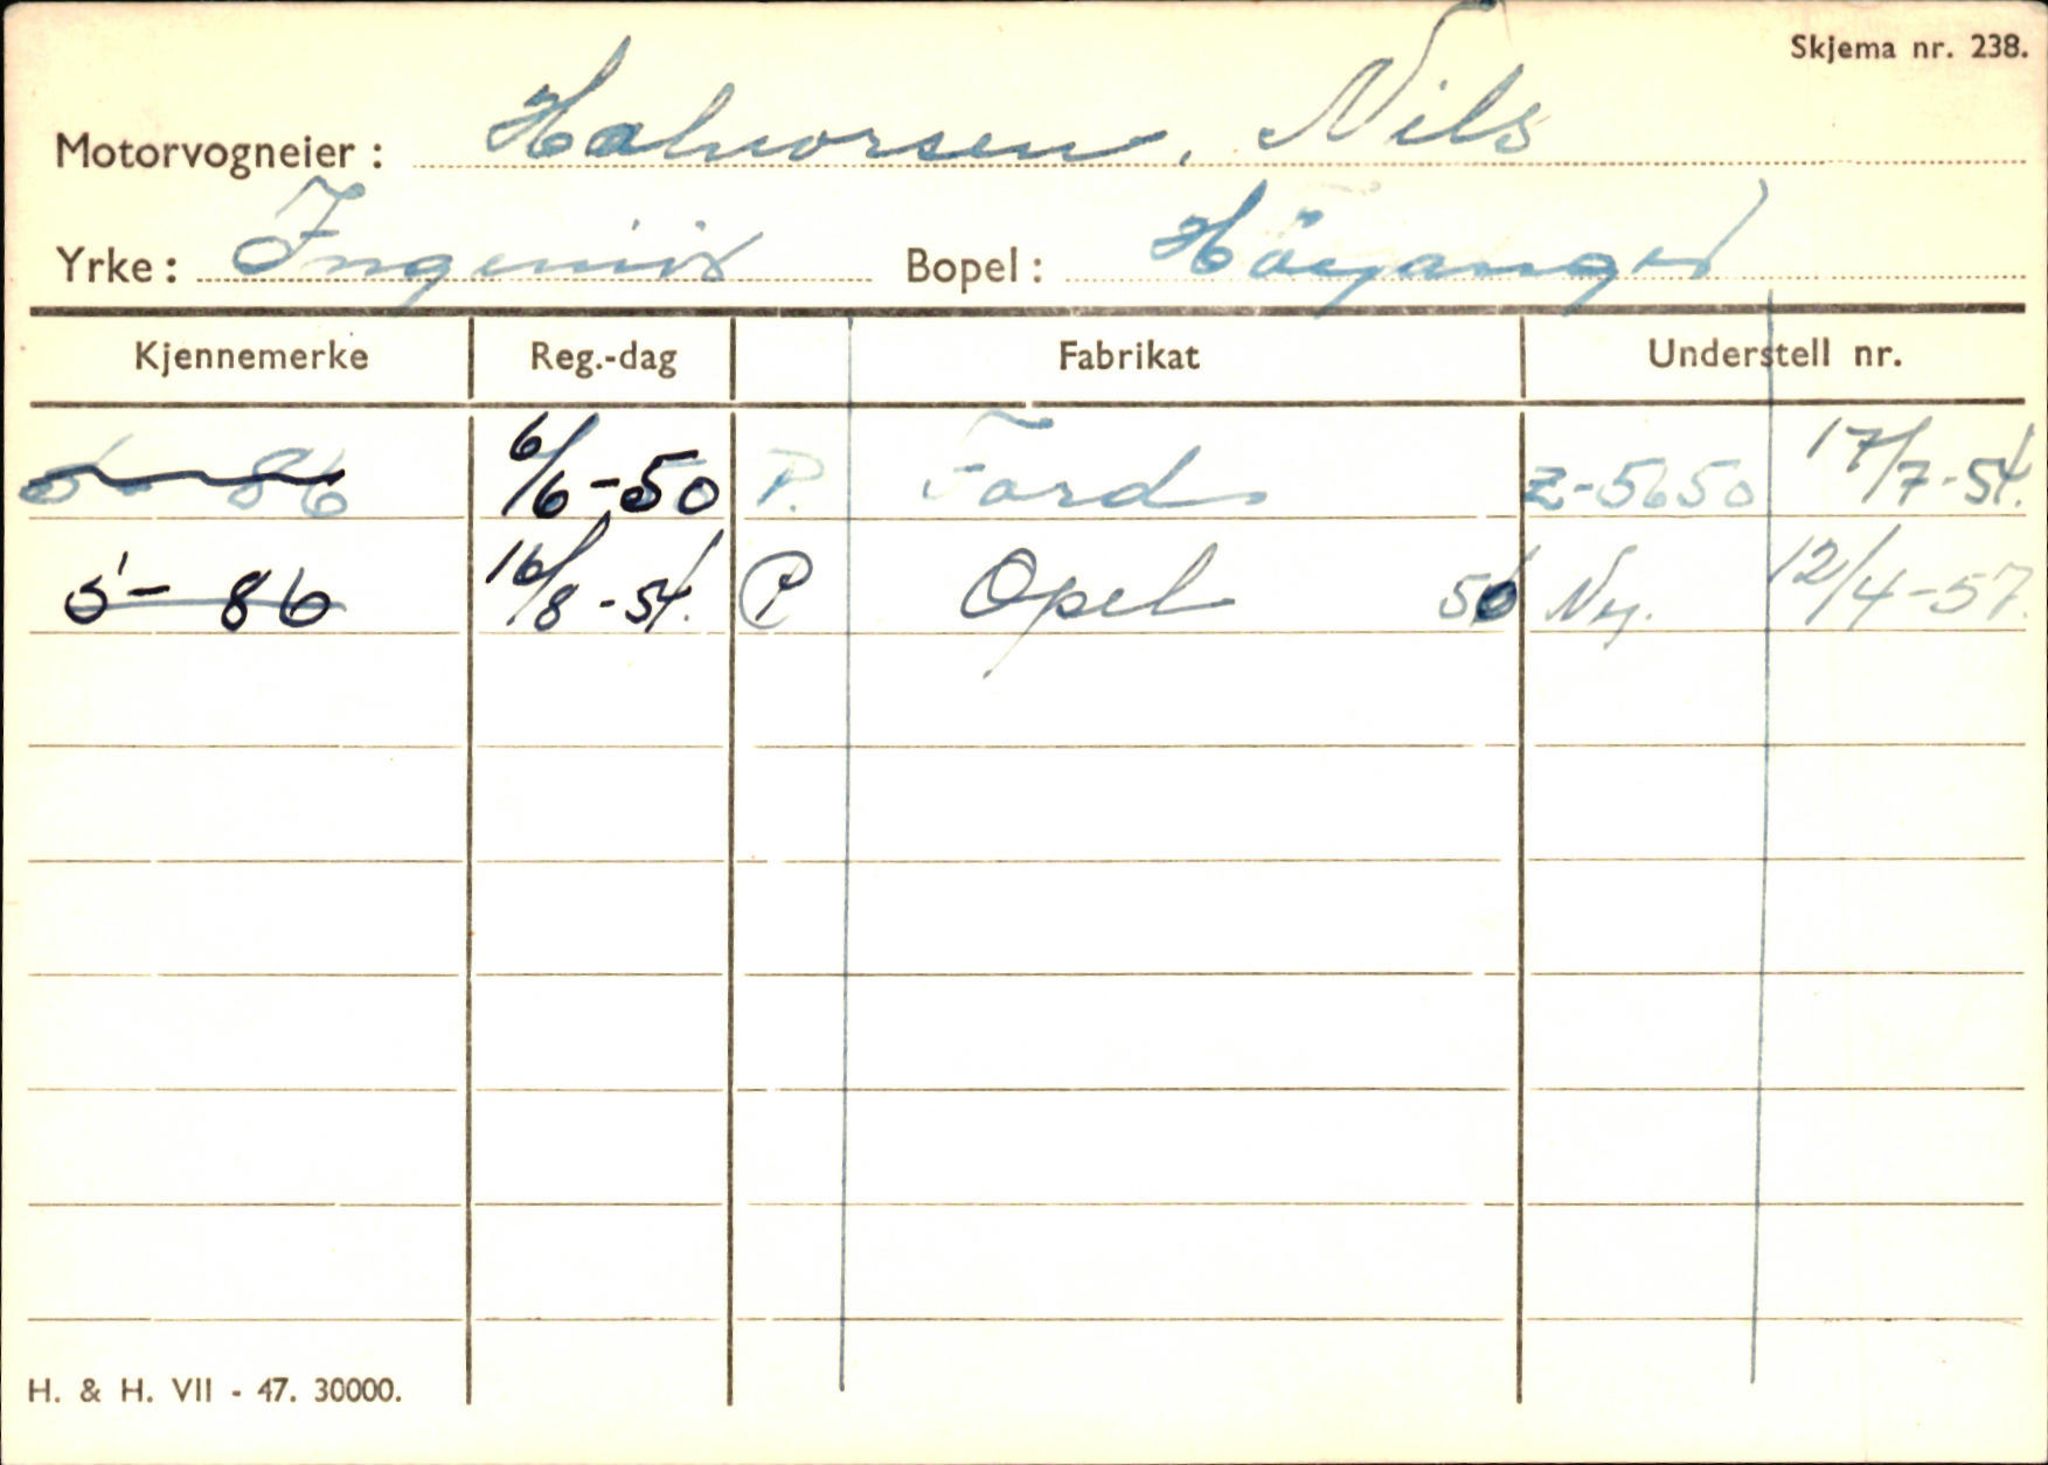 Skjema nr. 238.
Motorvogneier: Halvorsen, Nils
Yrke: Ingeniör Bopel: Höyanger
Kjennemerke Reg.-dag Fabrikat Understell nr.
S - 86 6/6-50 P. Ford Z-5650 17/7-54.
S - 86 16/8-54. P Opel Ny. 12/4-57.
H. & H. VII - 47. 30000.